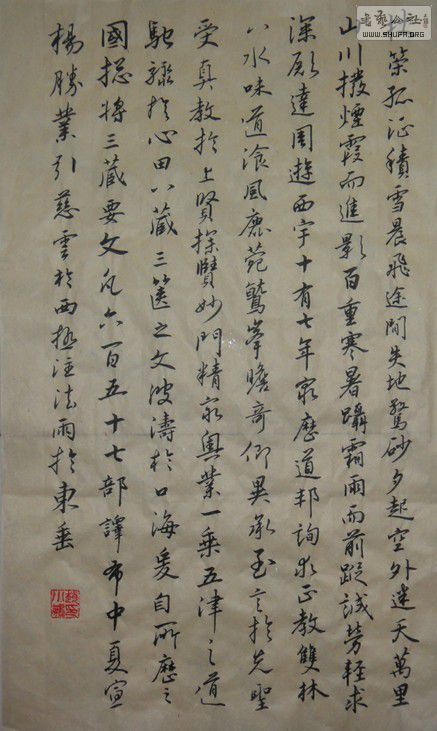 策孤征積雪晨飛途閒失地驚砂夕起空外迷天萬里
山川撥煙霞而進影百重寒暑躡霜雨而前蹤誠勞輕求
深願達周遊西宇十有七年窮歷道邦詢求正教雙林
八水味道飡風鹿菀鷲峯瞻奇仰異承至言於先聖
受真教於上賢探賾妙門精窮奧業一乘五津之道
馳驟於心田八藏三篋之文波濤於口海爰自所歷之
國総將三藏要文凡六百五十七部譯布中夏宣
楊勝業引慈雲於西極注法雨於東垂
WWW.SHUFA.ORG